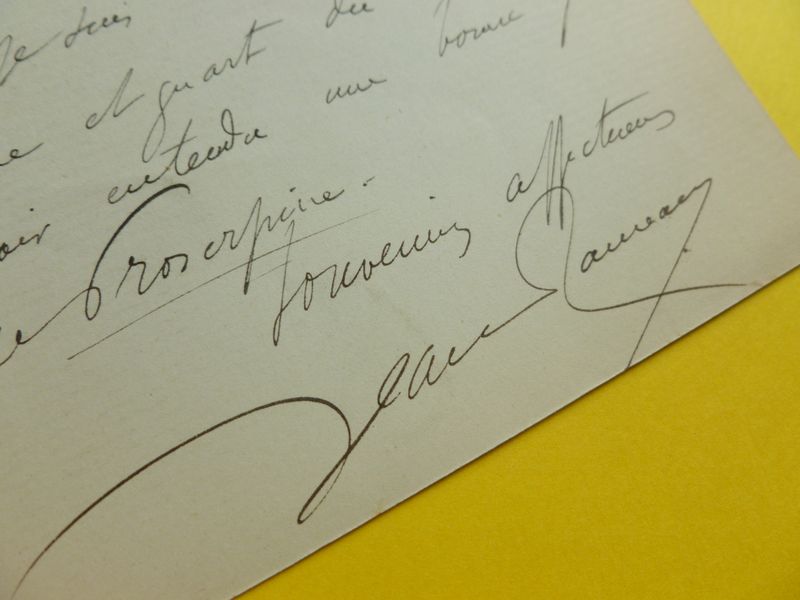 Je suis
et quart du
avoir entendu une bonne
de Proserpine.
Souvenirs affectueux
Jean Rameau